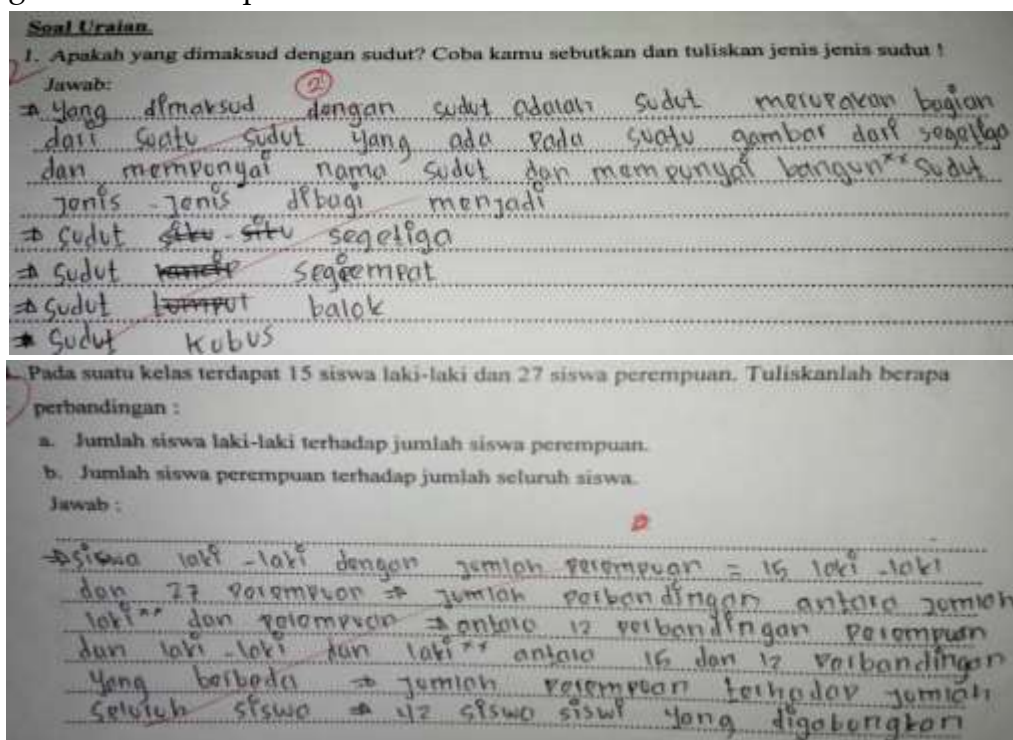 Soal Uraian.
1. Apakah yang dimaksud dengan sudut? Coba kamu sebutkan dan tuliskan jenis jenis sudut !
Jawab:
2
⇒ Yang dimaksud dengan sudut adalah sudut merupakan bagian
dari suatu sudut yang ada pada suatu gambar dari segetiga
dan mempenyai nama sudut dan mempunyai bangun** sudut
Jenis - Jenis dibagi menjadi
⇒ Sudut siku - siku segetiga
⇒ Sudut lancip segeempat
⇒ Sudut tumpul balok
⇒ Sudut kubus
Pada suatu kelas terdapat 15 siswa laki-laki dan 27 siswa perempuan. Tuliskanlah berapa
perbandingan :
a. Jumlah siswa laki-laki terhadap jumlah siswa perempuan.
b. Jumlah siswa perempuan terhadap jumlah seluruh siswa.
Jawab :
⇒ siswa laki - laki dengan jumlah perempuan = 15 laki - laki
dan 27 perempuan ⇒ jumlah perbandingan antara jumlah
laki** dan perempuan ⇒ antara 12 perbandingan perempuan
dan laki - laki dan laki** antara 15 dan 12 perbandingan
yang berbeda ⇒ jumlah perempuan terhadap jumlah
seluruh siswa ⇒ 42 siswa siswi yang digabungkan